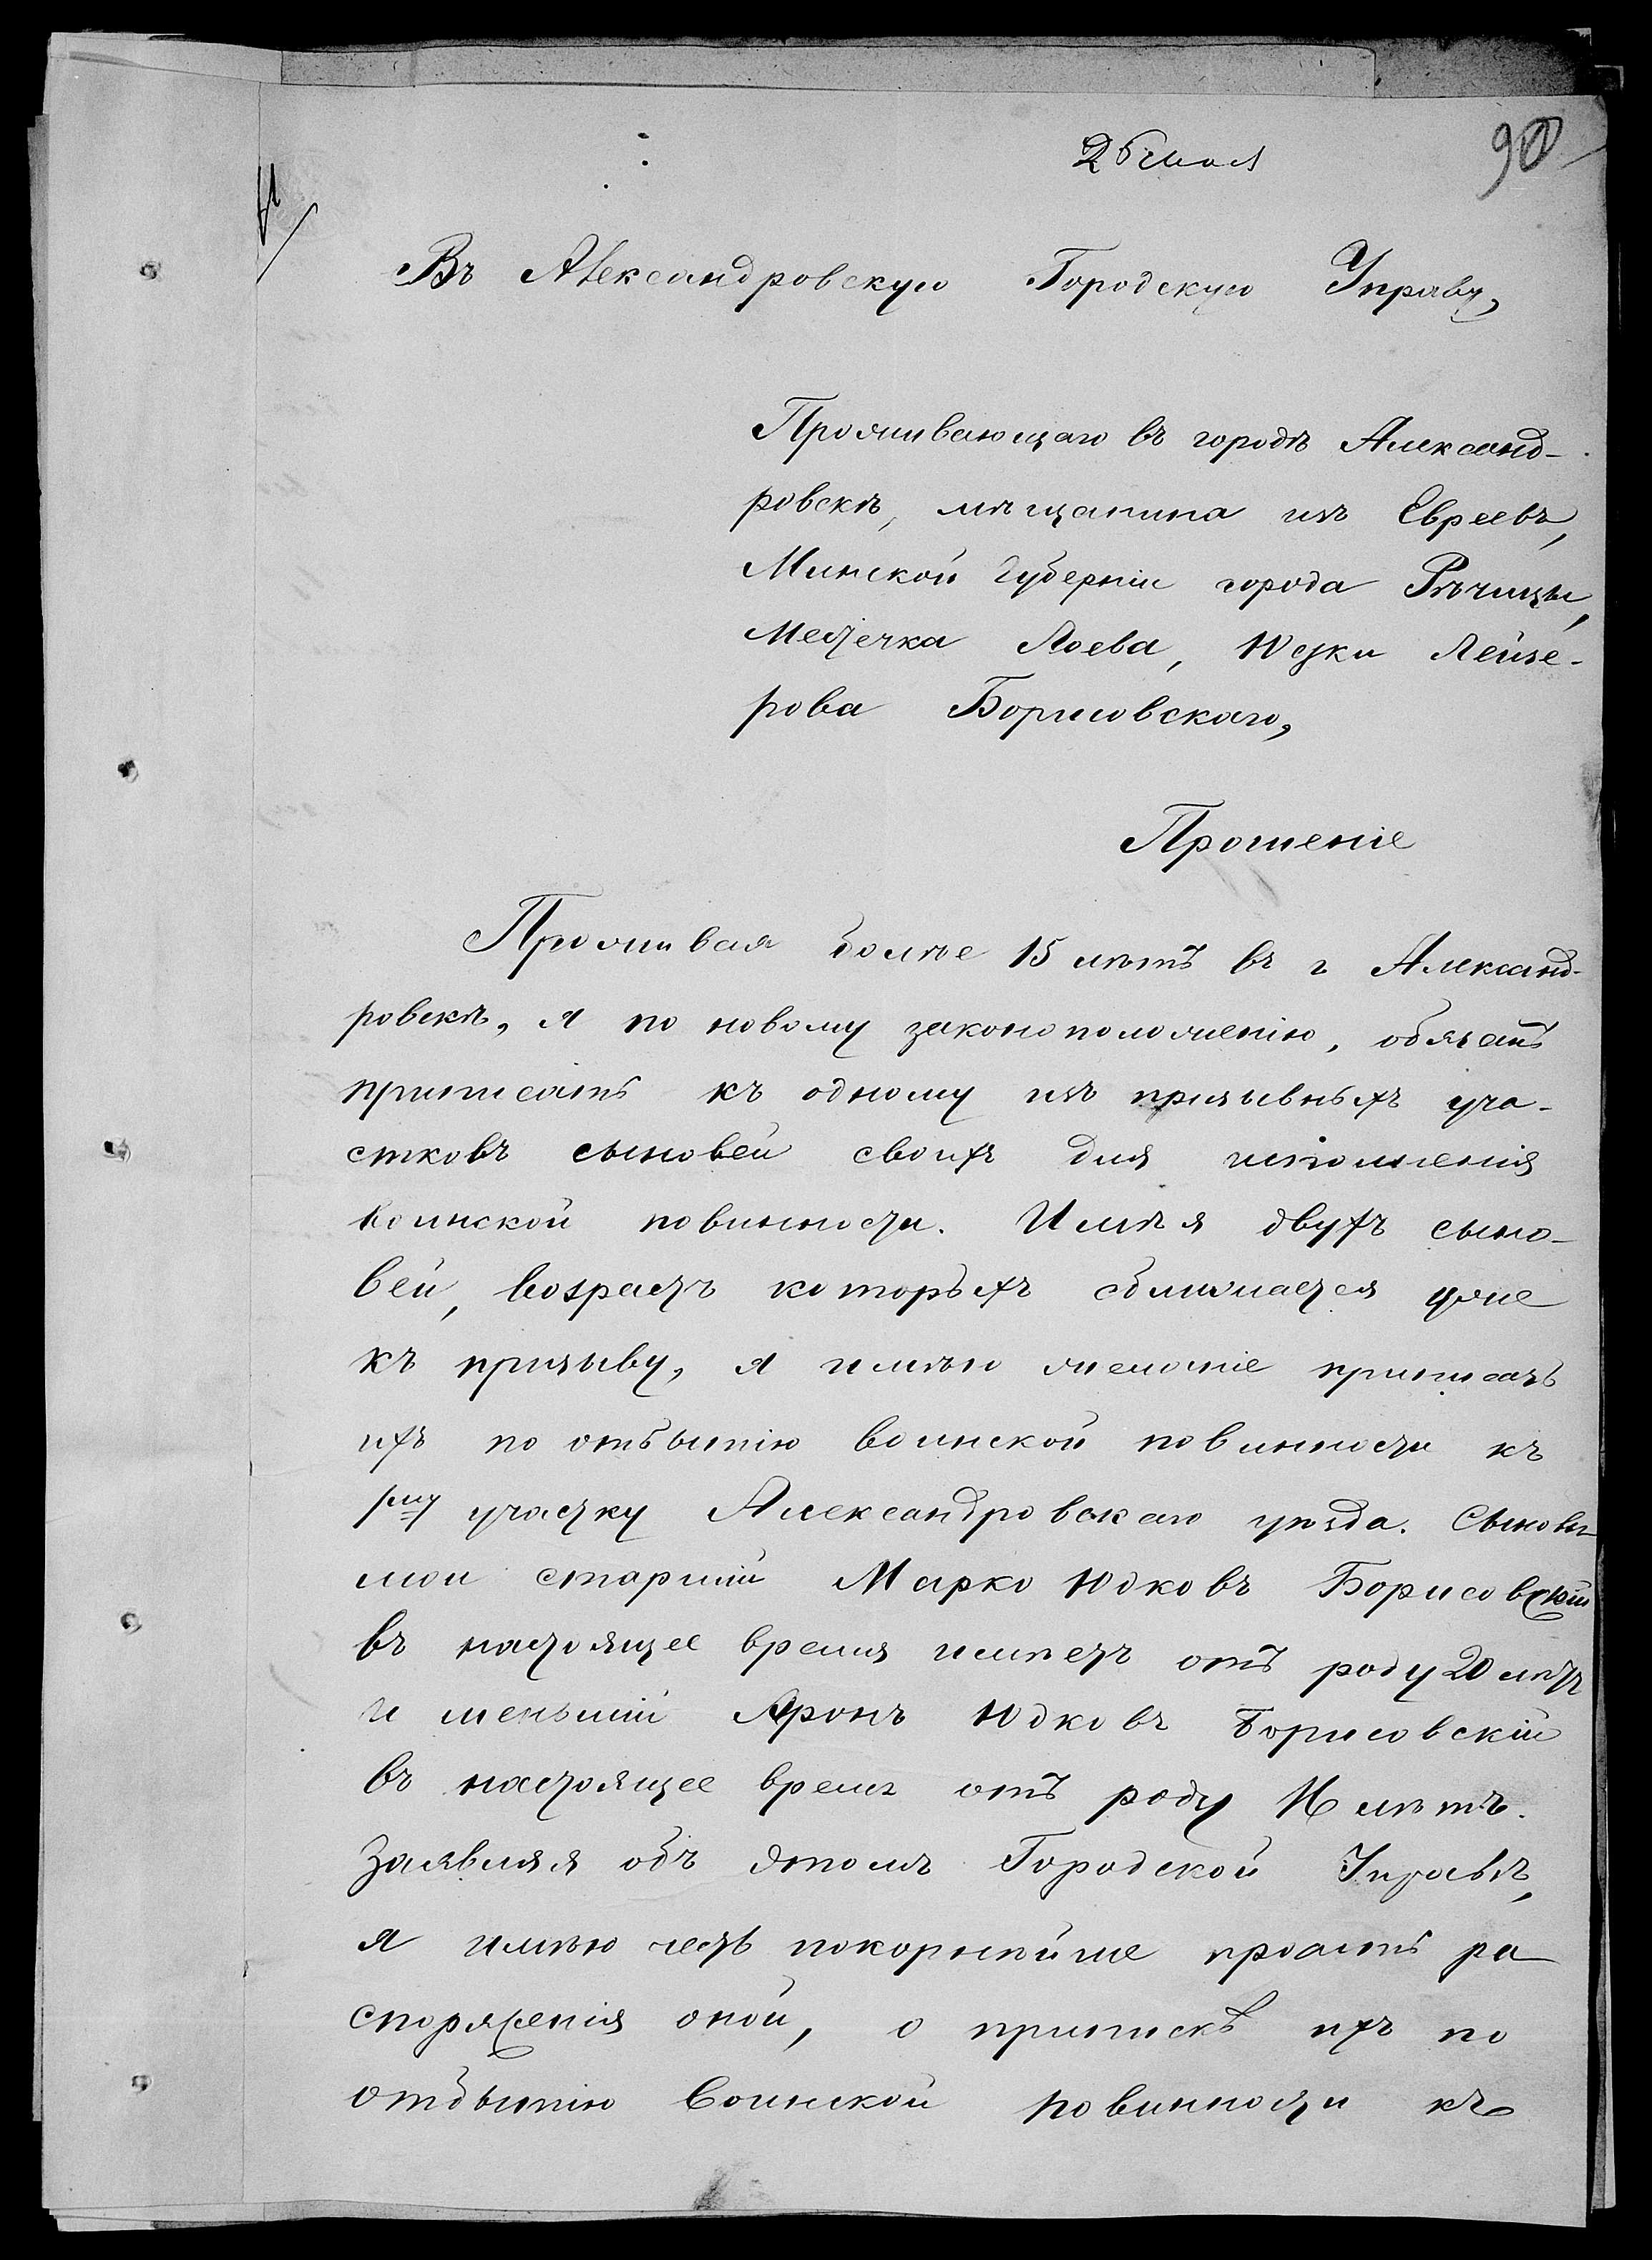 26 мая
90
Въ Александровскую Городскую Управу,
Проживающаго въ городѣ Александ-
ровскѣ, мѣщанина изъ Евреевъ,
Минской Губерніи города Рѣчицы,
Местечка Лоева, Юдки Лейзе-
рова Борисовскаго,
Прошеніе
Проживая болѣе 15 лѣтъ въ г Александ-
ровскѣ, я по новому законоположенію, обязанъ
приписать къ одному изъ призывныхъ уча-
стковъ сыновей своихъ для исполненія
воинской повинности. Имѣя двухъ сыно-
вей, возрастъ которыхъ сближается уже
къ призыву, я имѣю желаніе приписать
ихъ по отбытію воинской повинности къ
1му участку Александровскаго уѣзда. Сыновья
мои старшій Марко Юдковъ Борисовскій
въ настоящее время имѣетъ отъ роду 20 лѣтъ
и меньшій Аронъ Юдковъ Борисовскій
въ настоящее время отъ роду лѣтъ.
Заявляя объ этомъ Городской Управѣ,
я имѣю честь покорнѣйше просить ра
споряженія оной, о припискѣ ихъ по
отбытію воинской повинности къ